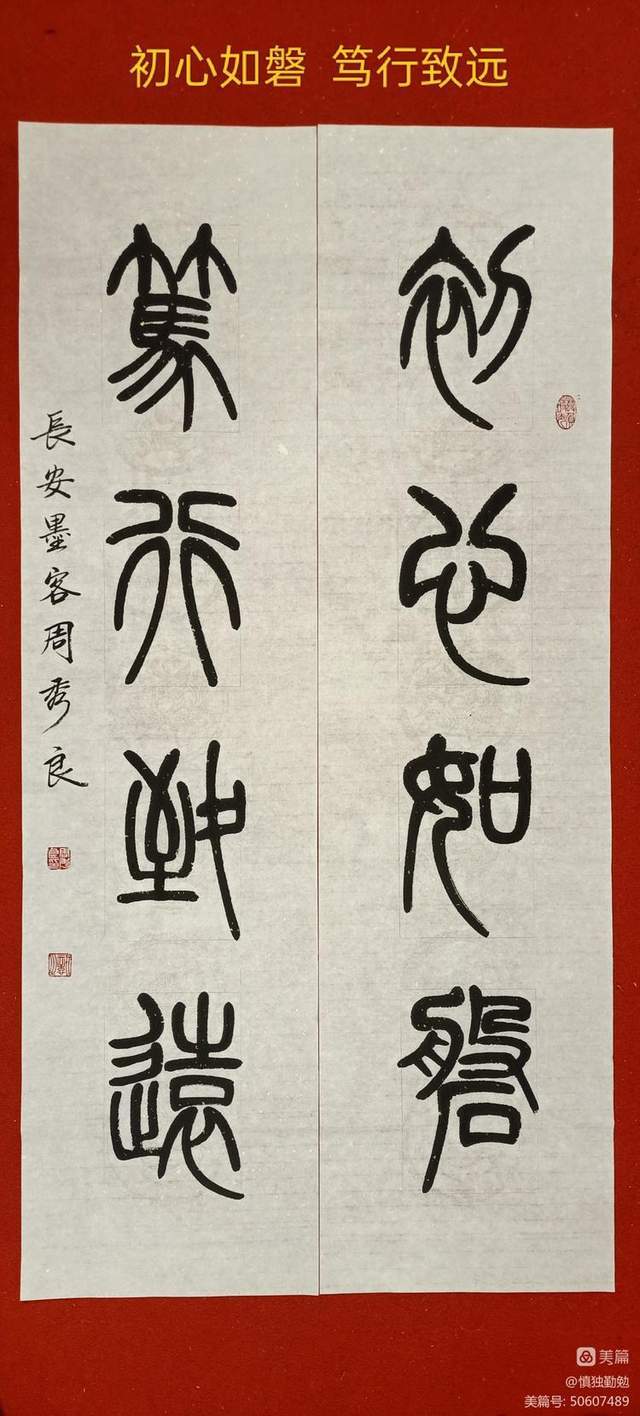 初心如磐 笃行致远
初心如磐
篤行致遠
長安墨客周秀良
美篇
@慎独勤勉
美篇号: 50607489